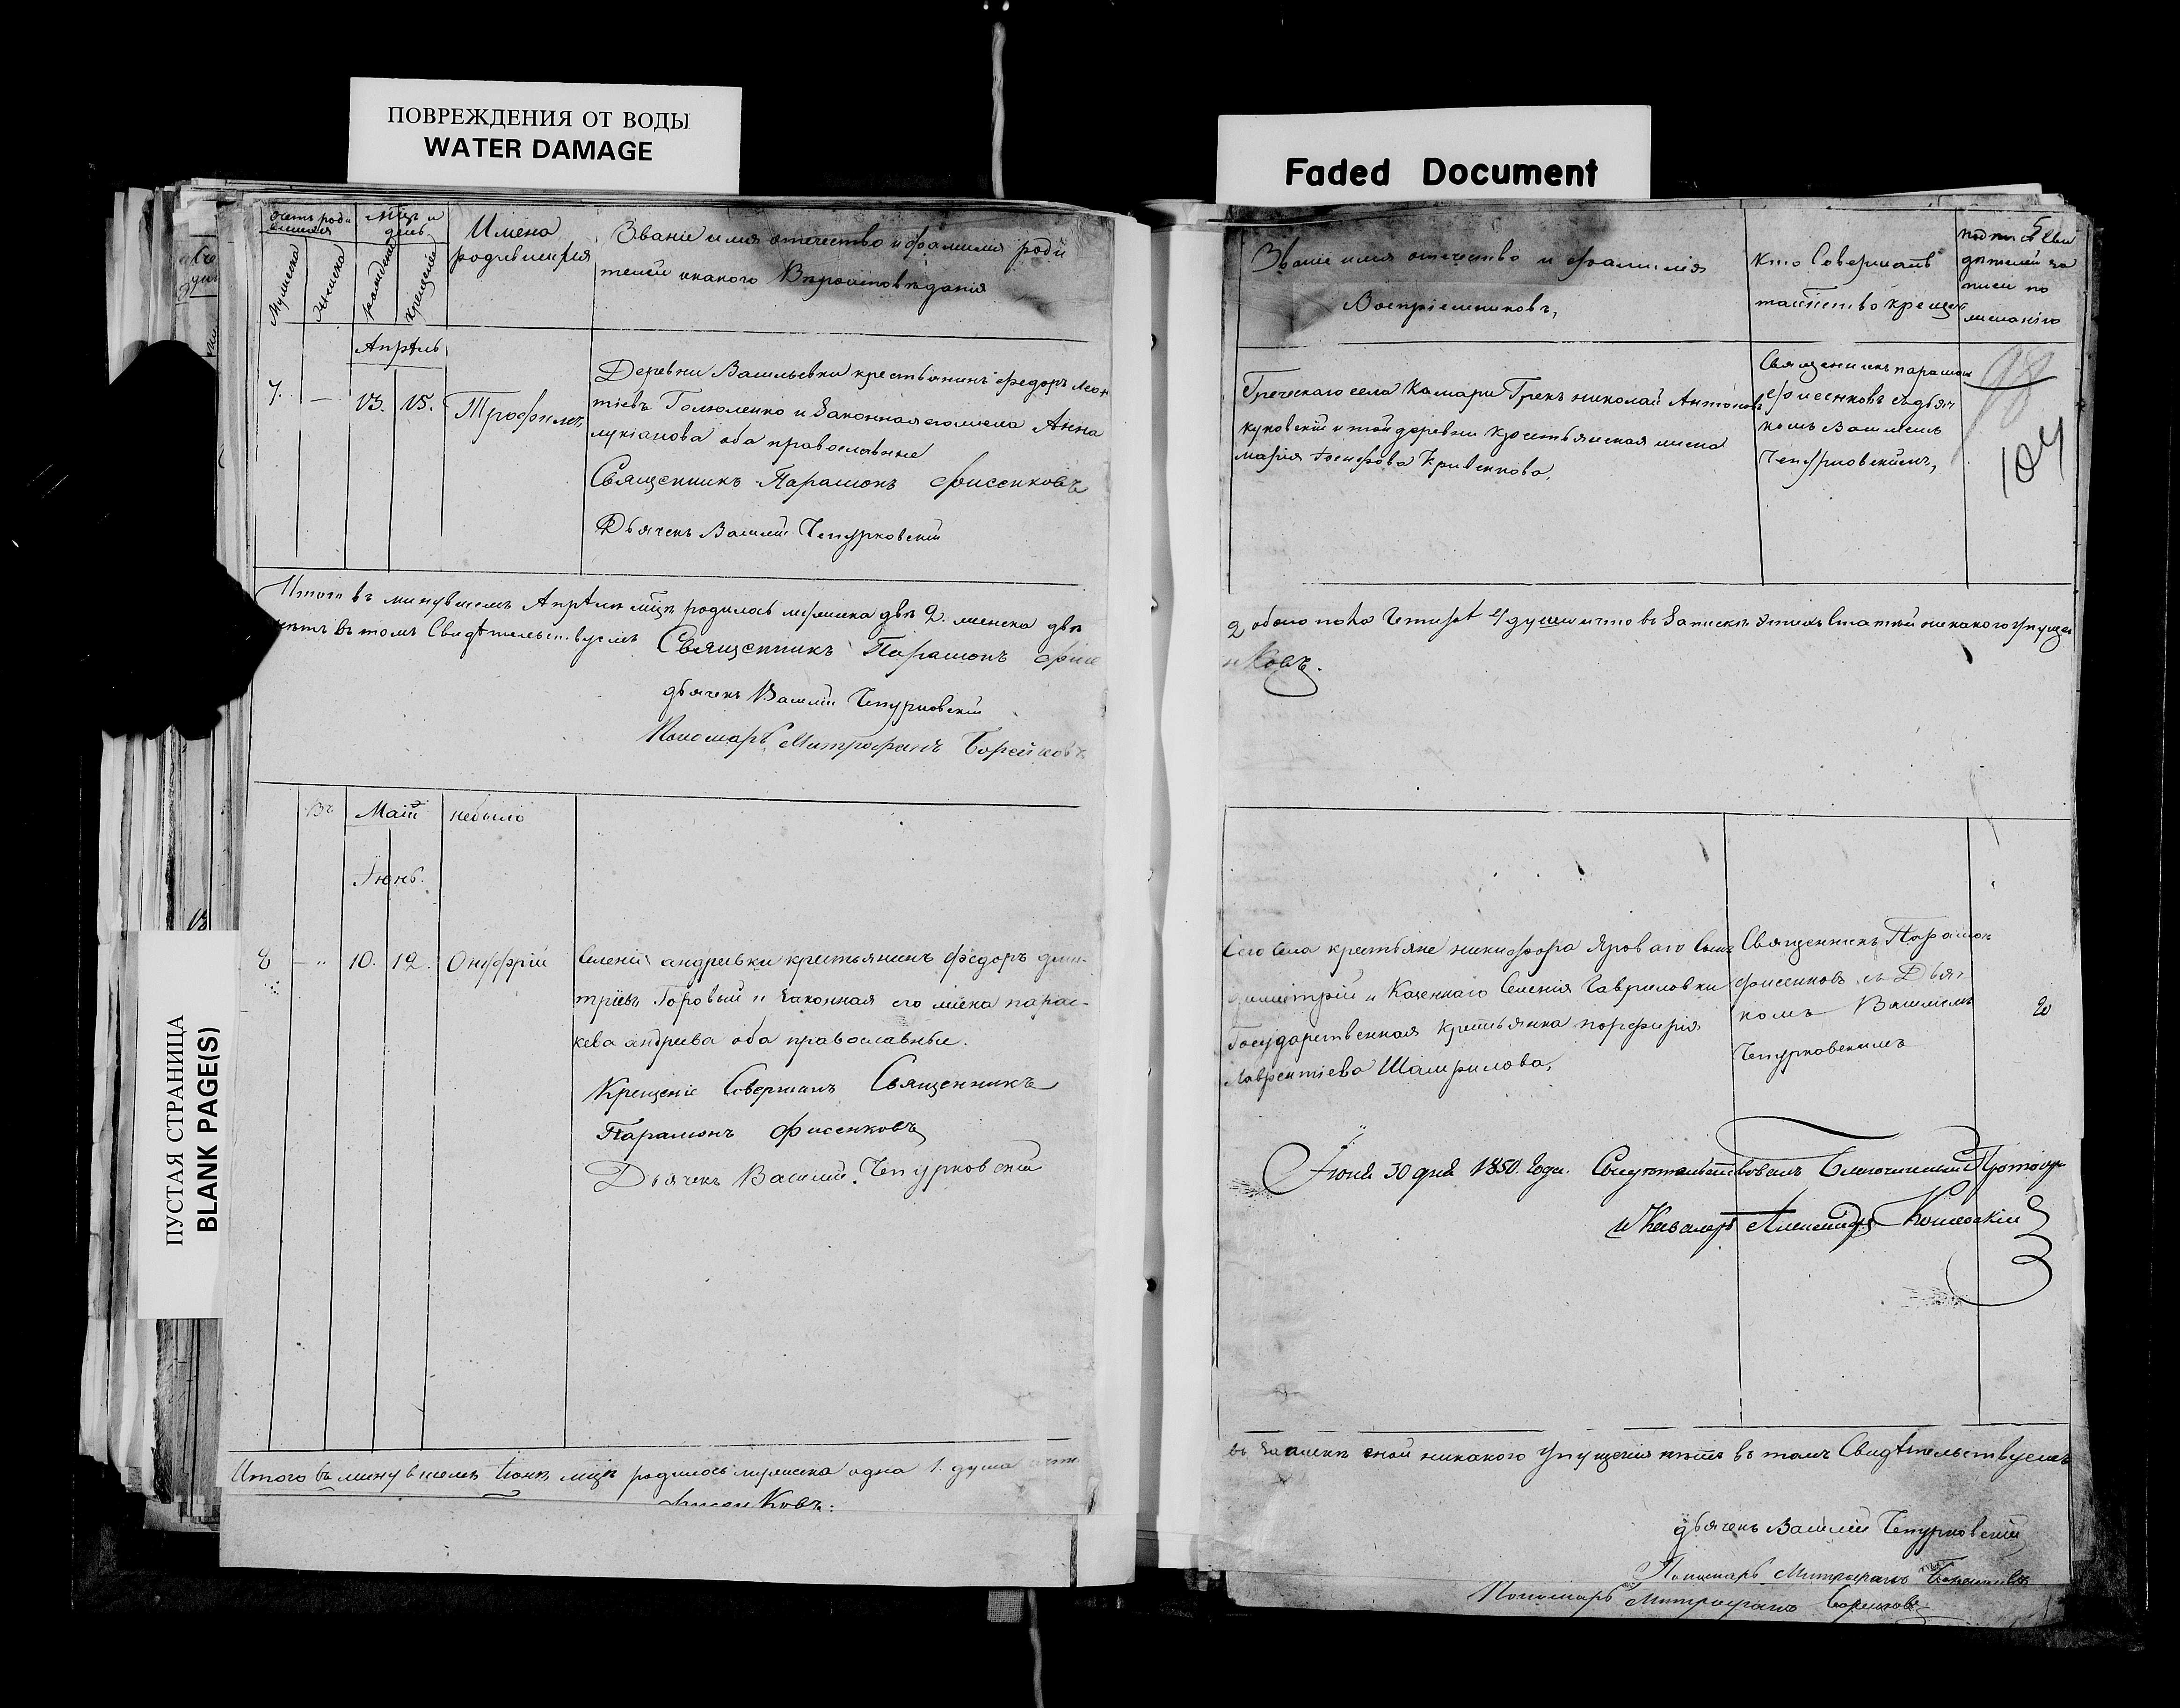 ПОВРЕЖДЕНИЯ ОТ ВОДЫ
WATER DAMAGE
Faded Document
ПУСТАЯ СТРАНИЦА
BLANK PAGE(S)
Мужеска
Женска
рожденія
крещенія
Имена
родившихся
Званіе имя отечество и фамилія роди
телей и какого Вероисповѣданія
Апрѣль
7. — 13. 15. Трофимъ
Деревни Васильевки крестьянинъ Федоръ Леон
тіевъ и Законная его жена Анна
лукіанова оба православные
Священникъ Парамонъ Фисенковъ
Дьячекъ Василій Чепурковскій
Итого въ минувшемъ Апрѣлѣ мцѣ родилось мужеска два 2. женска двѣ
въ томъ Свидѣтельствуемъ
Священникъ Парамонъ Фисе
дьячекъ Василій Чепурковскій
Пономарь Митрофанъ
Въ Маій небыло
Іюнь.
8 — " 10. 12. Онуфрій
Селенія андреевки крестьянинъ федоръ дми-
тріевъ Горовый и Законная его жена парас-
кева андреева оба православные.
Крещеніе Совершилъ Священникъ
Парамонъ Фисенковъ
Дьячекъ Василій Чепурковскій
Итого въ минувшемъ Іюнѣ мцѣ родилось мужеска одна 1. душа
Ковъ.
5
Званіе имя отечество и фамилія
Воспріемниковъ,
Кто Совершалъ
таинство крещен
98
104
Греческаго села Камари Грекъ николай Антоновъ
куповскій и той деревни крестьянская жена
марія Іосифова Кривенкова.
Священникъ парамон
Фисенковъ съ дьяч
комъ Василіемъ
Чепурковскимъ,
2 обоего пола Четыре 4 души и что въ Запискѣ Этихъ Статьей никакого упущен
нКовъ.
Сего Села крестьяне никифора Ярового Сынъ
димитрій и Казеннаго Селенія Гавриловки
Государственная Крестьянка порфирія
Лаврентіева
Священникъ Парамон
Фисенковъ съ Дьяч
комъ Василіемъ
Чепурковскимъ
Іюня 30 дня 1850. Года. Благочинный Протоіер
и Кавалеръ Александръ
въ Запискѣ сной никакого упущенія нѣтъ въ томъ Свидѣтельствуемъ
дьячекъ Василій Чепурковскій
Пономарь Митрофанъ
Пономарь Митрофанъ